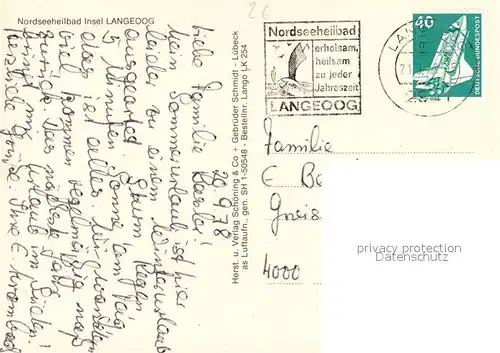 Nordseeheilbad Insel LANGEOOG
26
Nordseeheilbad
erholsam,
heilsam
zu jeder
Jahreszeit
LANGEOOG
LAN
40
DEUTSCHE BUNDESPOST
20.9.78
Liebe Familie
mein Sommerurlaub ist hier
leider zu einem Winterurlaub
ausgeartet. Sturm Regen
5 Minuten Sonne am Tag
das ist alles. Wir
viel kommen regelmäßig naß
zurück. Das nächste Jahr
bringt mir Urlaub im Süden!
Herzliche Grüße. Ihre E.
Herst. u. Verlag Schöning & Co + Gebrüder Schmidt - Lübeck
as Luftaufn., gen. SH 1-50548 - Bestellnr. Lango LK 254
Familie
E Be
Gneis
4000
privacy protection
Datenschutz